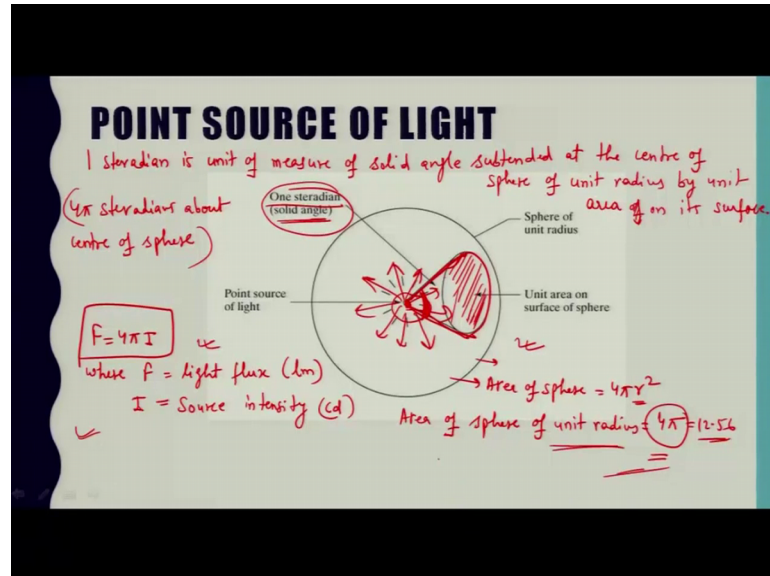 POINT SOURCE OF LIGHT
1 steradian is unit of measure of solid angle subtended at the centre of
sphere of unit radius by unit
area of on its surface.
(4π steradians about
centre of sphere)
One steradian
(solid angle)
Sphere of
unit radius
Point source
of light
Unit area on
surface of sphere
F = 4πI
where F = light flux (lm)
I = Source intensity (cd)
→ Area of sphere = 4πr²
Area of sphere of unit radius = 4π = 12.56